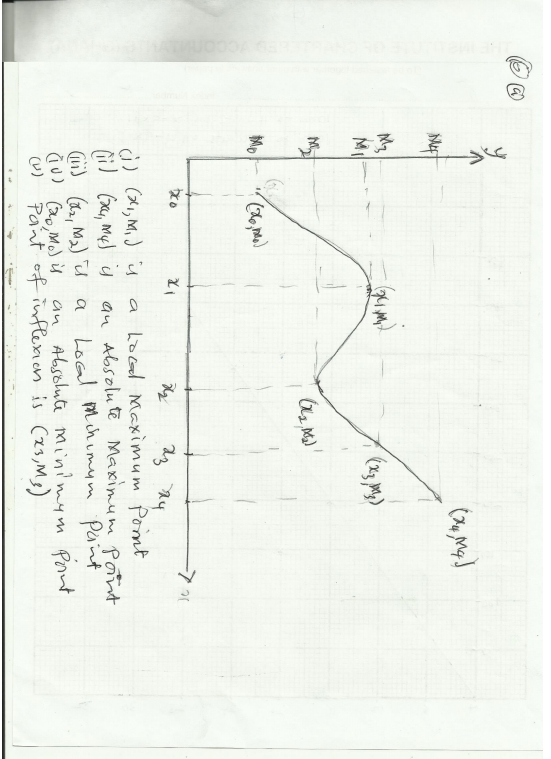 THE INSTITUTE OF CHARTERED ACCOUNTANTS
6 a
y
M4
M3
M1
M2
M0
(x4, M4)
(x1, M1)
(x3, M3)
(x2, M2)
(x0, M0)
x0
x1
x2
x3
x4
x
(i) (x1, M1) is a Local Maximum Point
(ii) (x4, M4) is an Absolute Maximum Point
(iii) (x2, M2) is a Local Minimum Point
(iv) (x0, M0) is an Absolute Minimum Point
(v) Point of inflexion is (x3, M3)